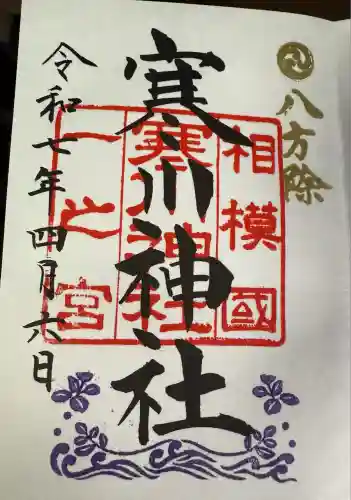 八方除
寒川神社
相模國
寒川神社
一之宮
令和七年四月六日